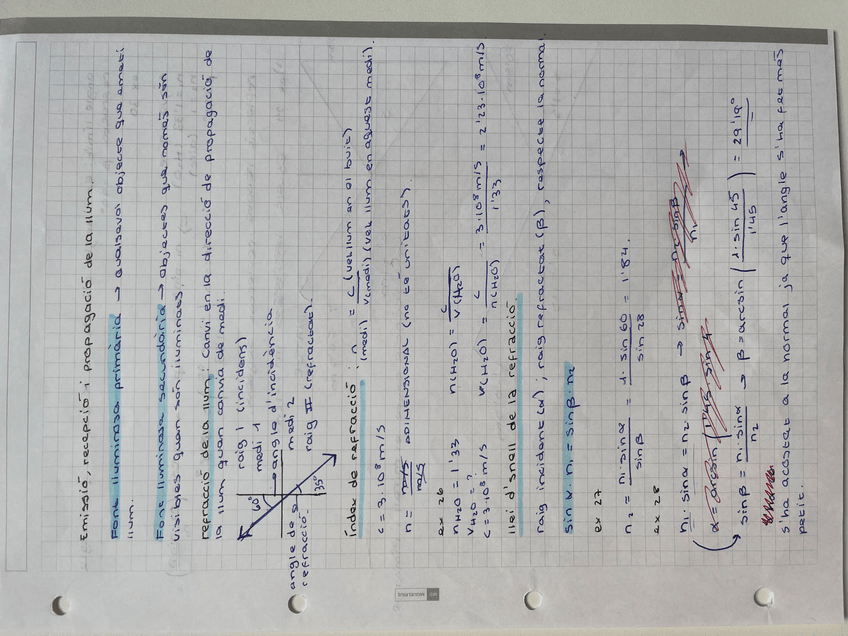 Emissió, recepció i propagació de la llum.
Font lluminosa primària → qualsevol objecte que emeti
llum.
Font lluminosa secundària → objectes que només són
visibles quan són il·luminats.
refracció de la llum: Canvi en la direcció de propagació de
la llum quan canvia de medi.
raig 1 (incident)
medi 1
60°
angle d'incidència
medi 2
35°
raig II (refractat).
angle de
refracció.
índex de refracció: n (medi) = c (vel. llum en el buit) / v(medi) (vel. llum en aquest medi).
c = 3·10⁸ m/s
n = m/s / m/s ADIMENSIONAL (no té unitats).
ex 26
n H₂O = 1'33 n(H₂O) = c / v(H₂O)
v H₂O = ?
c = 3·10⁸ m/s v(H₂O) = c / n(H₂O) = 3·10⁸ m/s / 1'33 = 2'23·10⁸ m/s.
llei d'snell de la refracció.
raig incident (α); raig refractat (β), respecte la normal.
sin α · n₁ = sin β · n₂
ex 27
n₂ = n₁ · sin α / sin β = 1 · sin 60 / sin 28 = 1'84.
ex 28
n₁ · sin α = n₂ · sin β → sin α = n₂ · sin β / n₁
α = arcsin (1'45 · sin 4
sin β = n₁ · sin α / n₂ → β = arcsin (1 · sin 45 / 1'45) = 29'19°
s'ha acostat a la normal ja que l'angle s'ha fet més
petit.